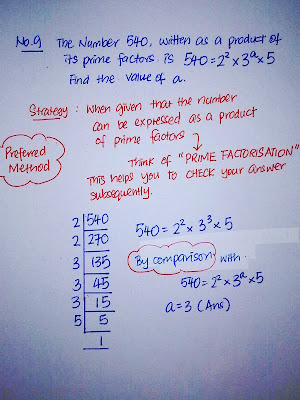 No.9 The Number 540, written as a product of
its prime factors is 540=2²×3ᵃ×5
Find the value of a.
Strategy : When given that the number
can be expressed as a product
of prime factors
↓
Preferred
Method
Think of "PRIME FACTORISATION"
This helps you to CHECK your answer
subsequently.
2 540
2 270
3 135
3 45
3 15
5 5
1
540=2²×3³×5
By comparison with
540=2²×3ᵃ×5
a=3 (Ans)